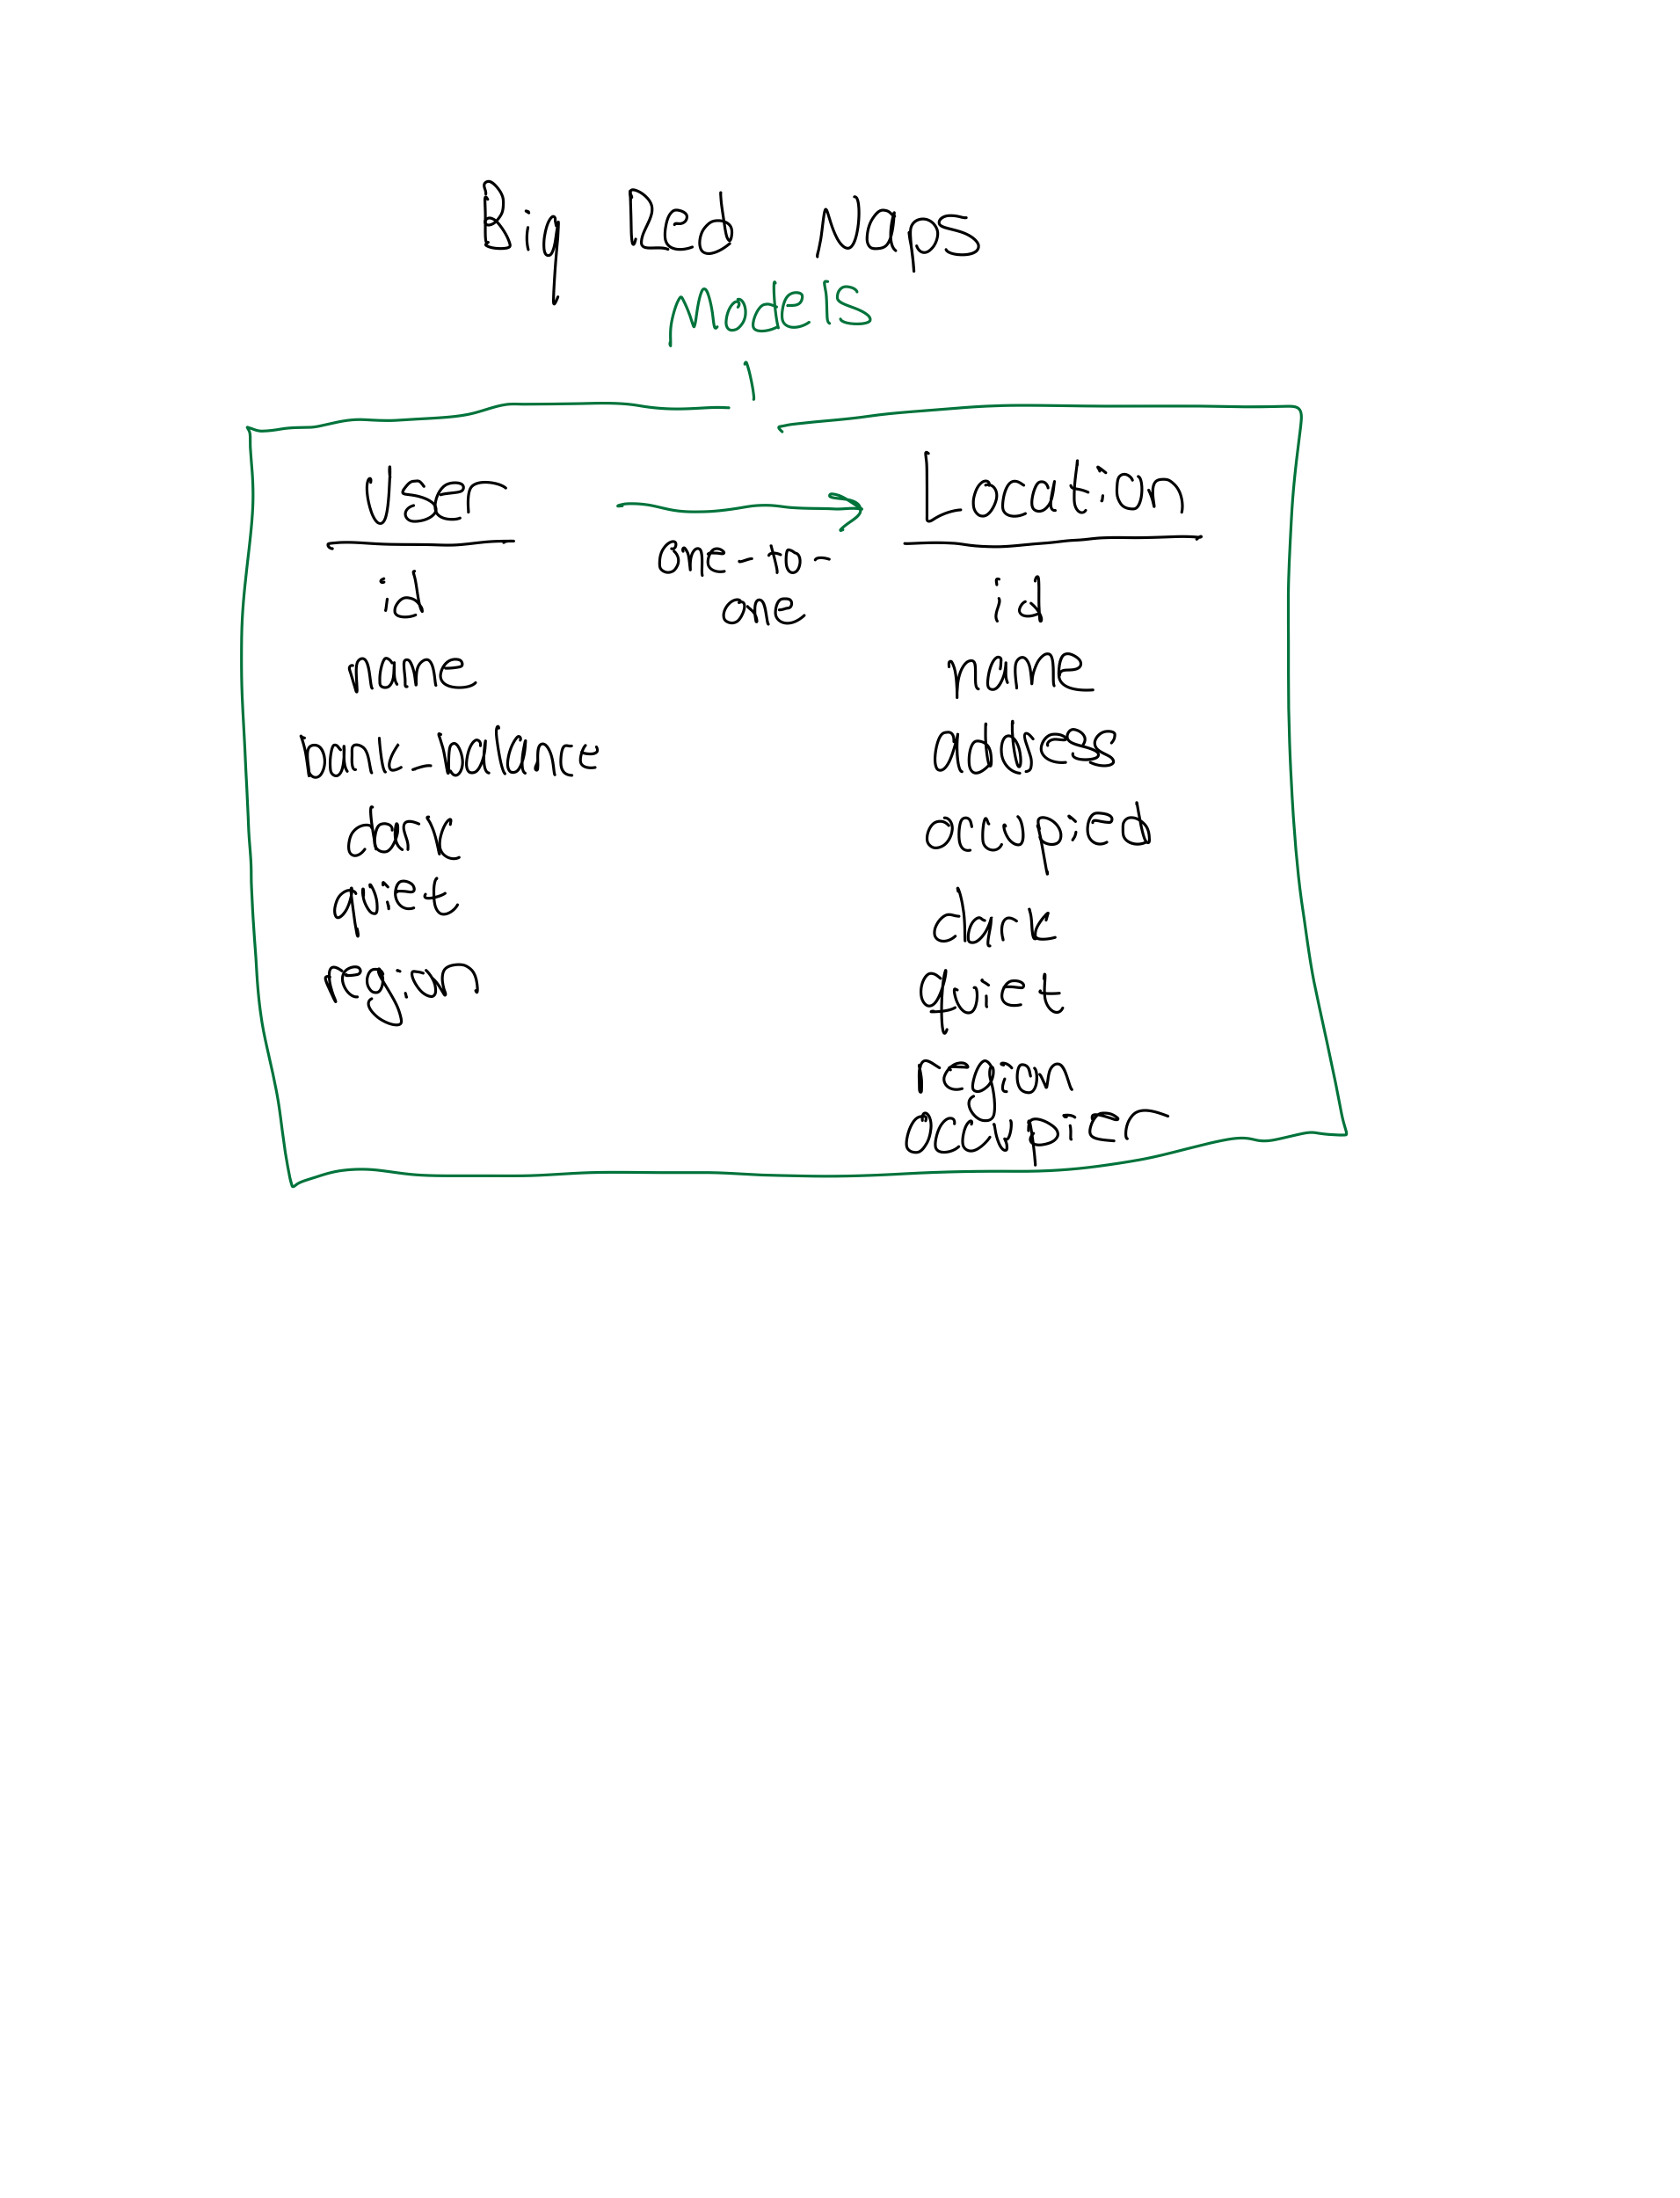 Big Red Naps
Models
User
id
name
bank_balance
dark
quiet
region
one-to-
one
Location
id
name
address
occupied
dark
quiet
region
occupier